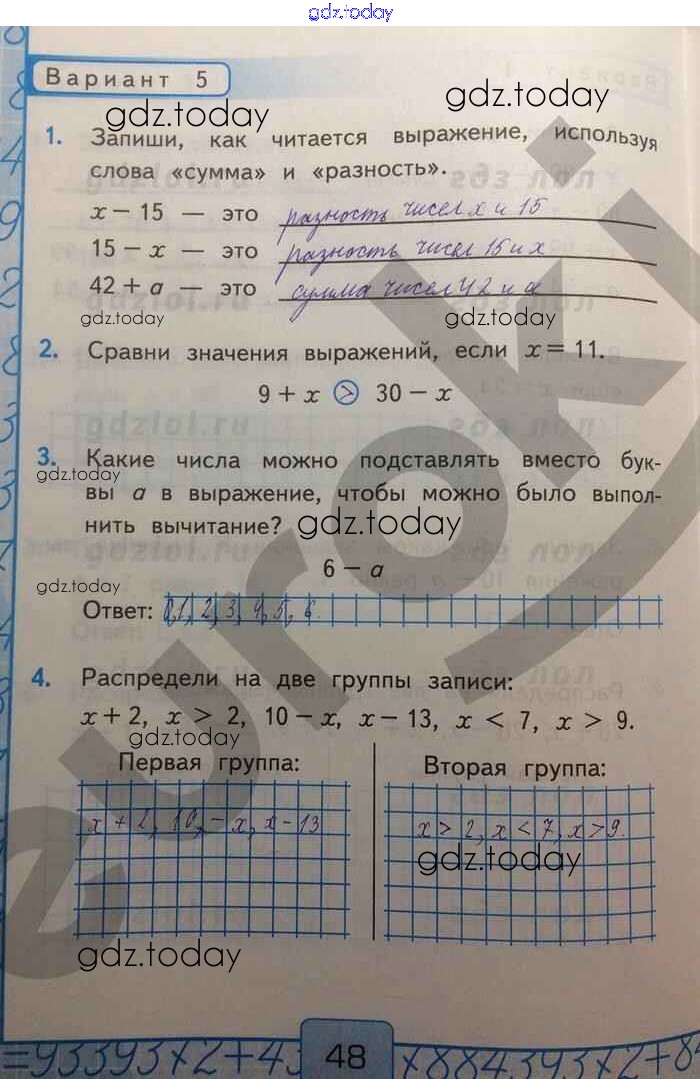 gdz.today
Вариант 5
gdz.today
gdz.today
1. Запиши, как читается выражение, используя
слова «сумма» и «разность».
x − 15 — это разность чисел x и 15
15 − x — это разность чисел 15 и x
42 + a — это сумма чисел 42 и a
gdz.today
gdz.today
2. Сравни значения выражений, если x = 11.
9 + x > 30 − x
3. Какие числа можно подставлять вместо бук-
gdz.today
вы a в выражение, чтобы можно было выпол-
нить вычитание?
gdz.today
6 − a
gdz.today
Ответ: 0,1,2,3,4,5,6.
4. Распредели на две группы записи:
x + 2, x > 2, 10 − x, x − 13, x < 7, x > 9.
gdz.today
Первая группа:
Вторая группа:
x + 2, 10, − x, x − 13
x > 2, x < 7, x > 9.
gdz.today
gdz.today
48